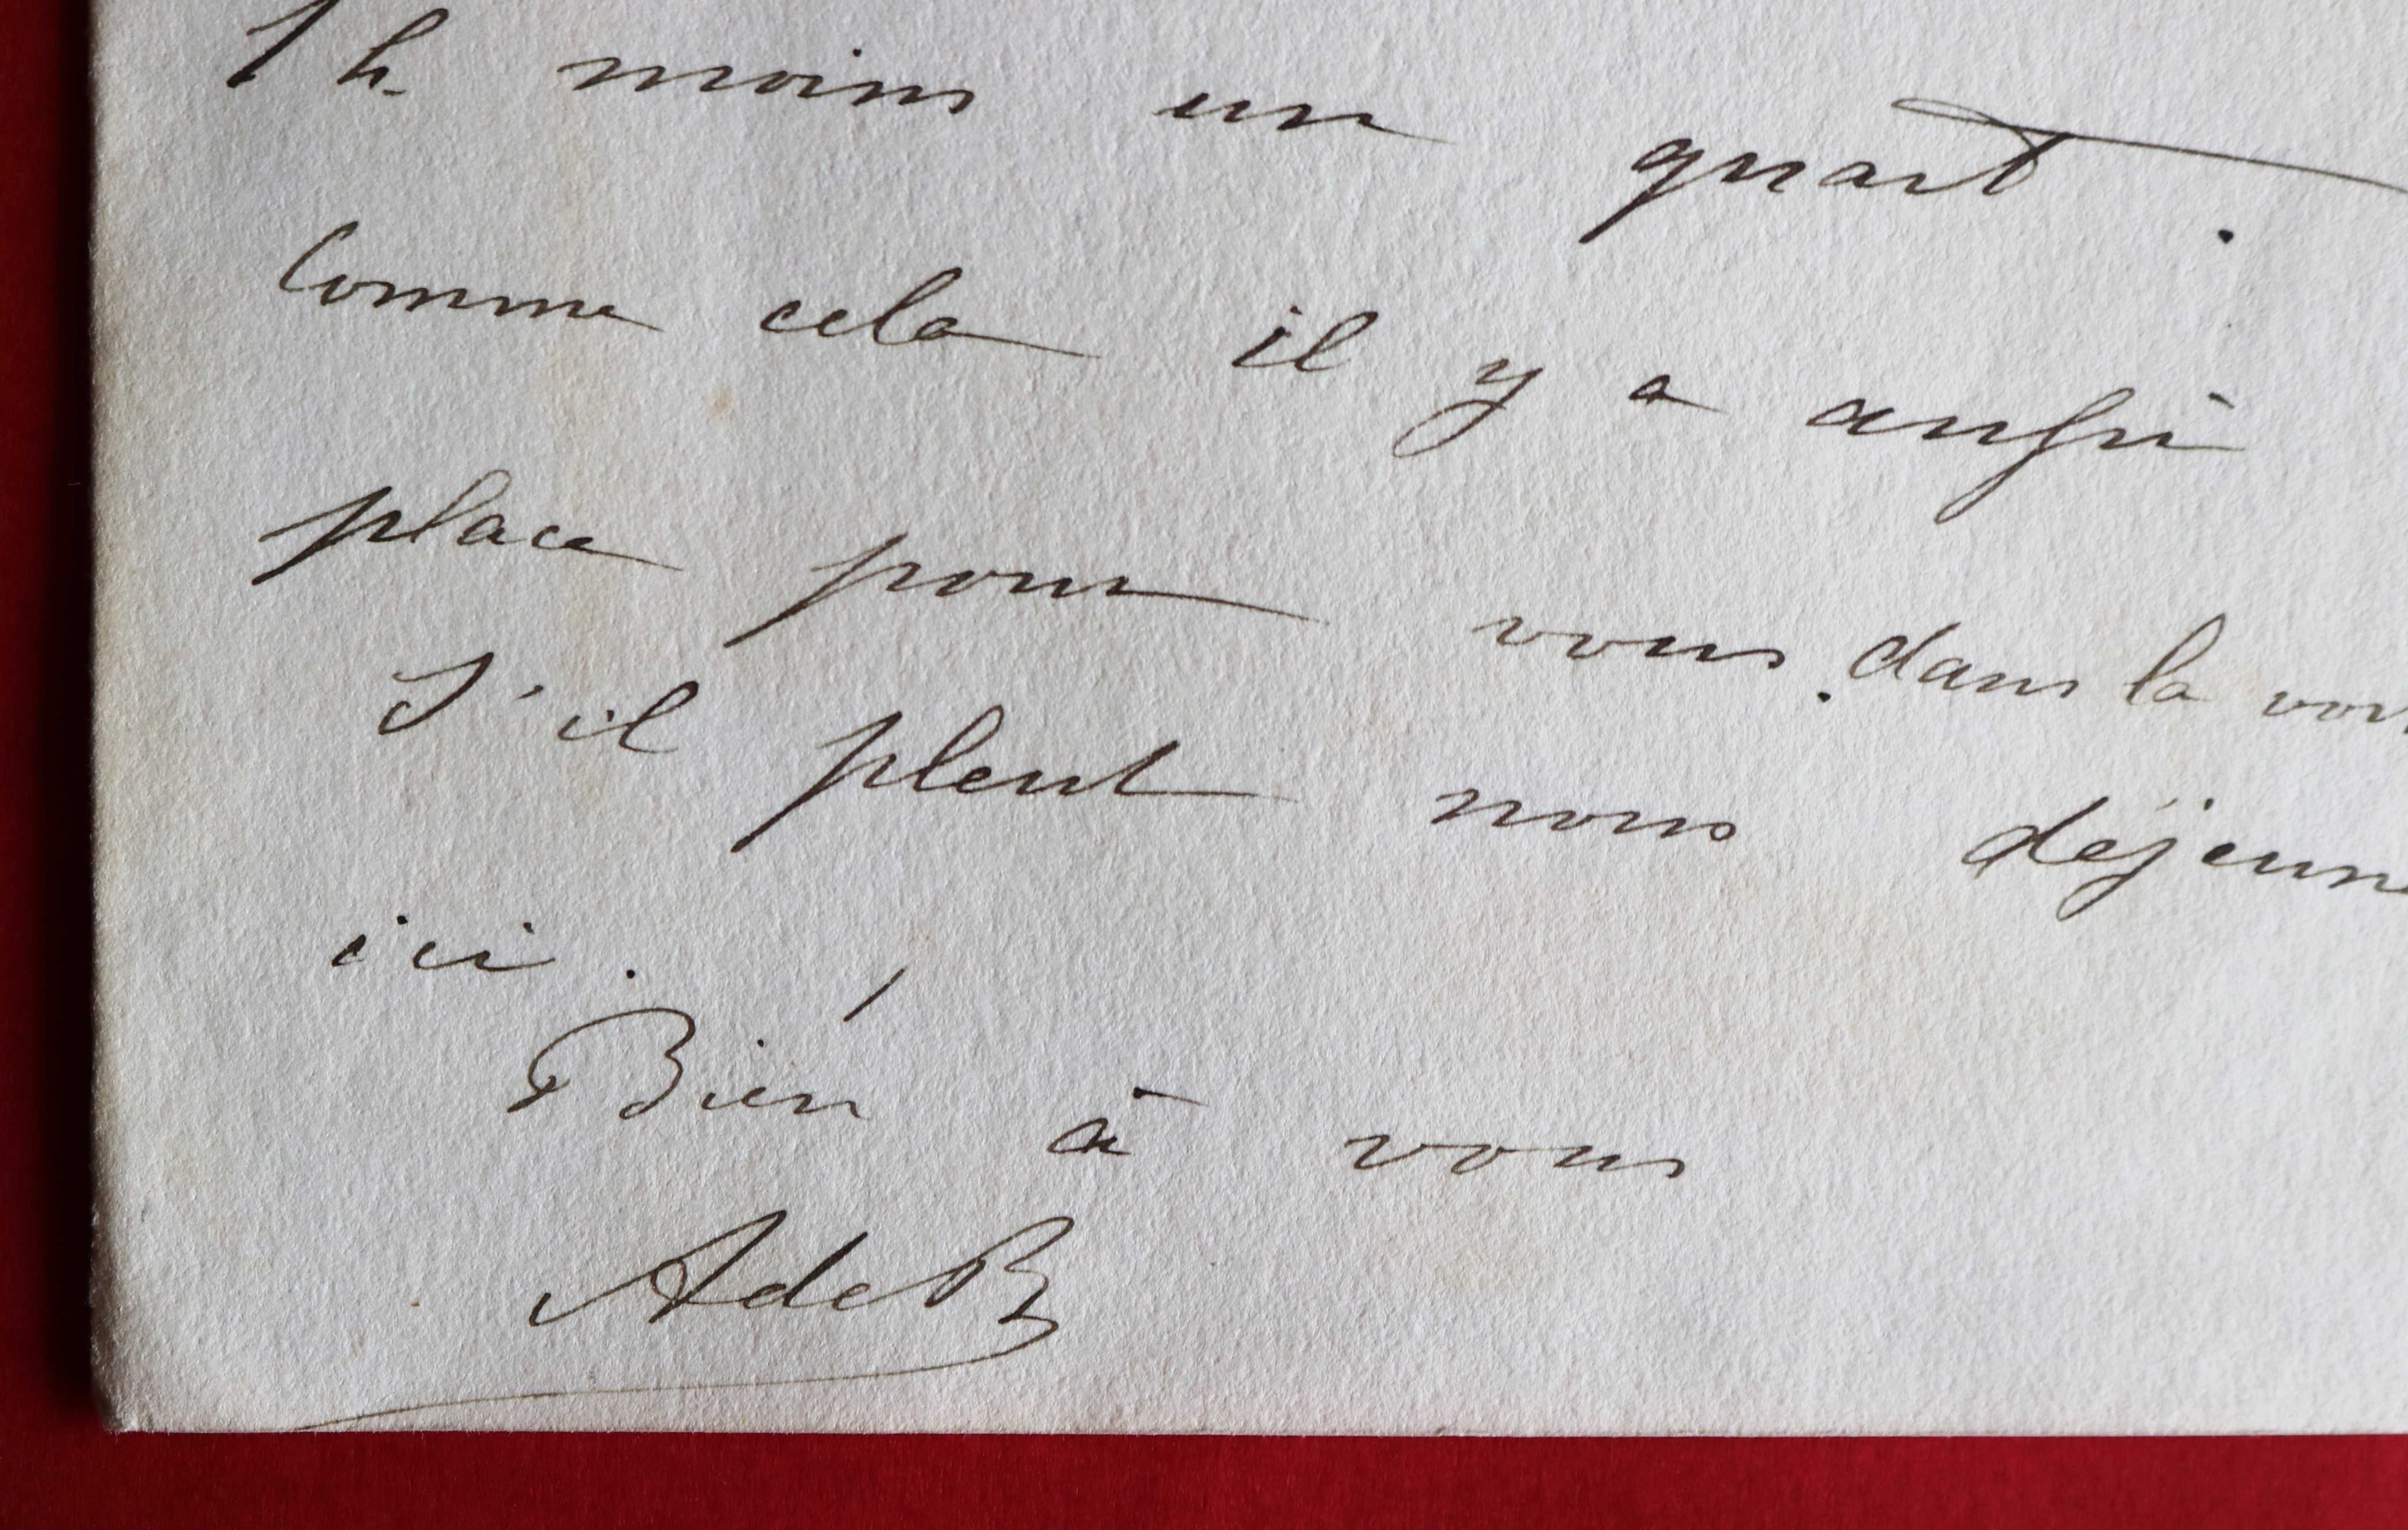 1 h. moins un quart.
Comme cela il y a aussi
place pour vous. dans la voi
S'il pleut nous déjeune
ici.
Bien à vous
AdeB